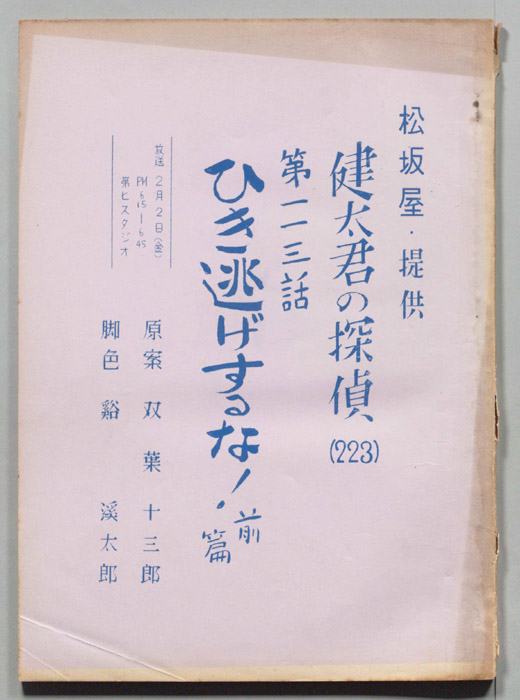 松坂屋・提供
健太君の探偵(223)
第一一三話
ひき逃げするな!前篇
放送 2月2日(金)
PM 6 15—6 45
第ヒスタジオ
原案 双葉十三郎
脚色 谿渓太郎